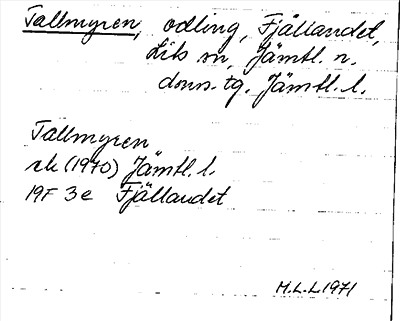 Tallmyren, odling, Fjällandet,
Lits sn, Jämtl. n.
doms. tg. Jämtl. l.
Tallmyren
rk (1970) Jämtl. l.
19F 3e Fjällandet
M.L.L 1971